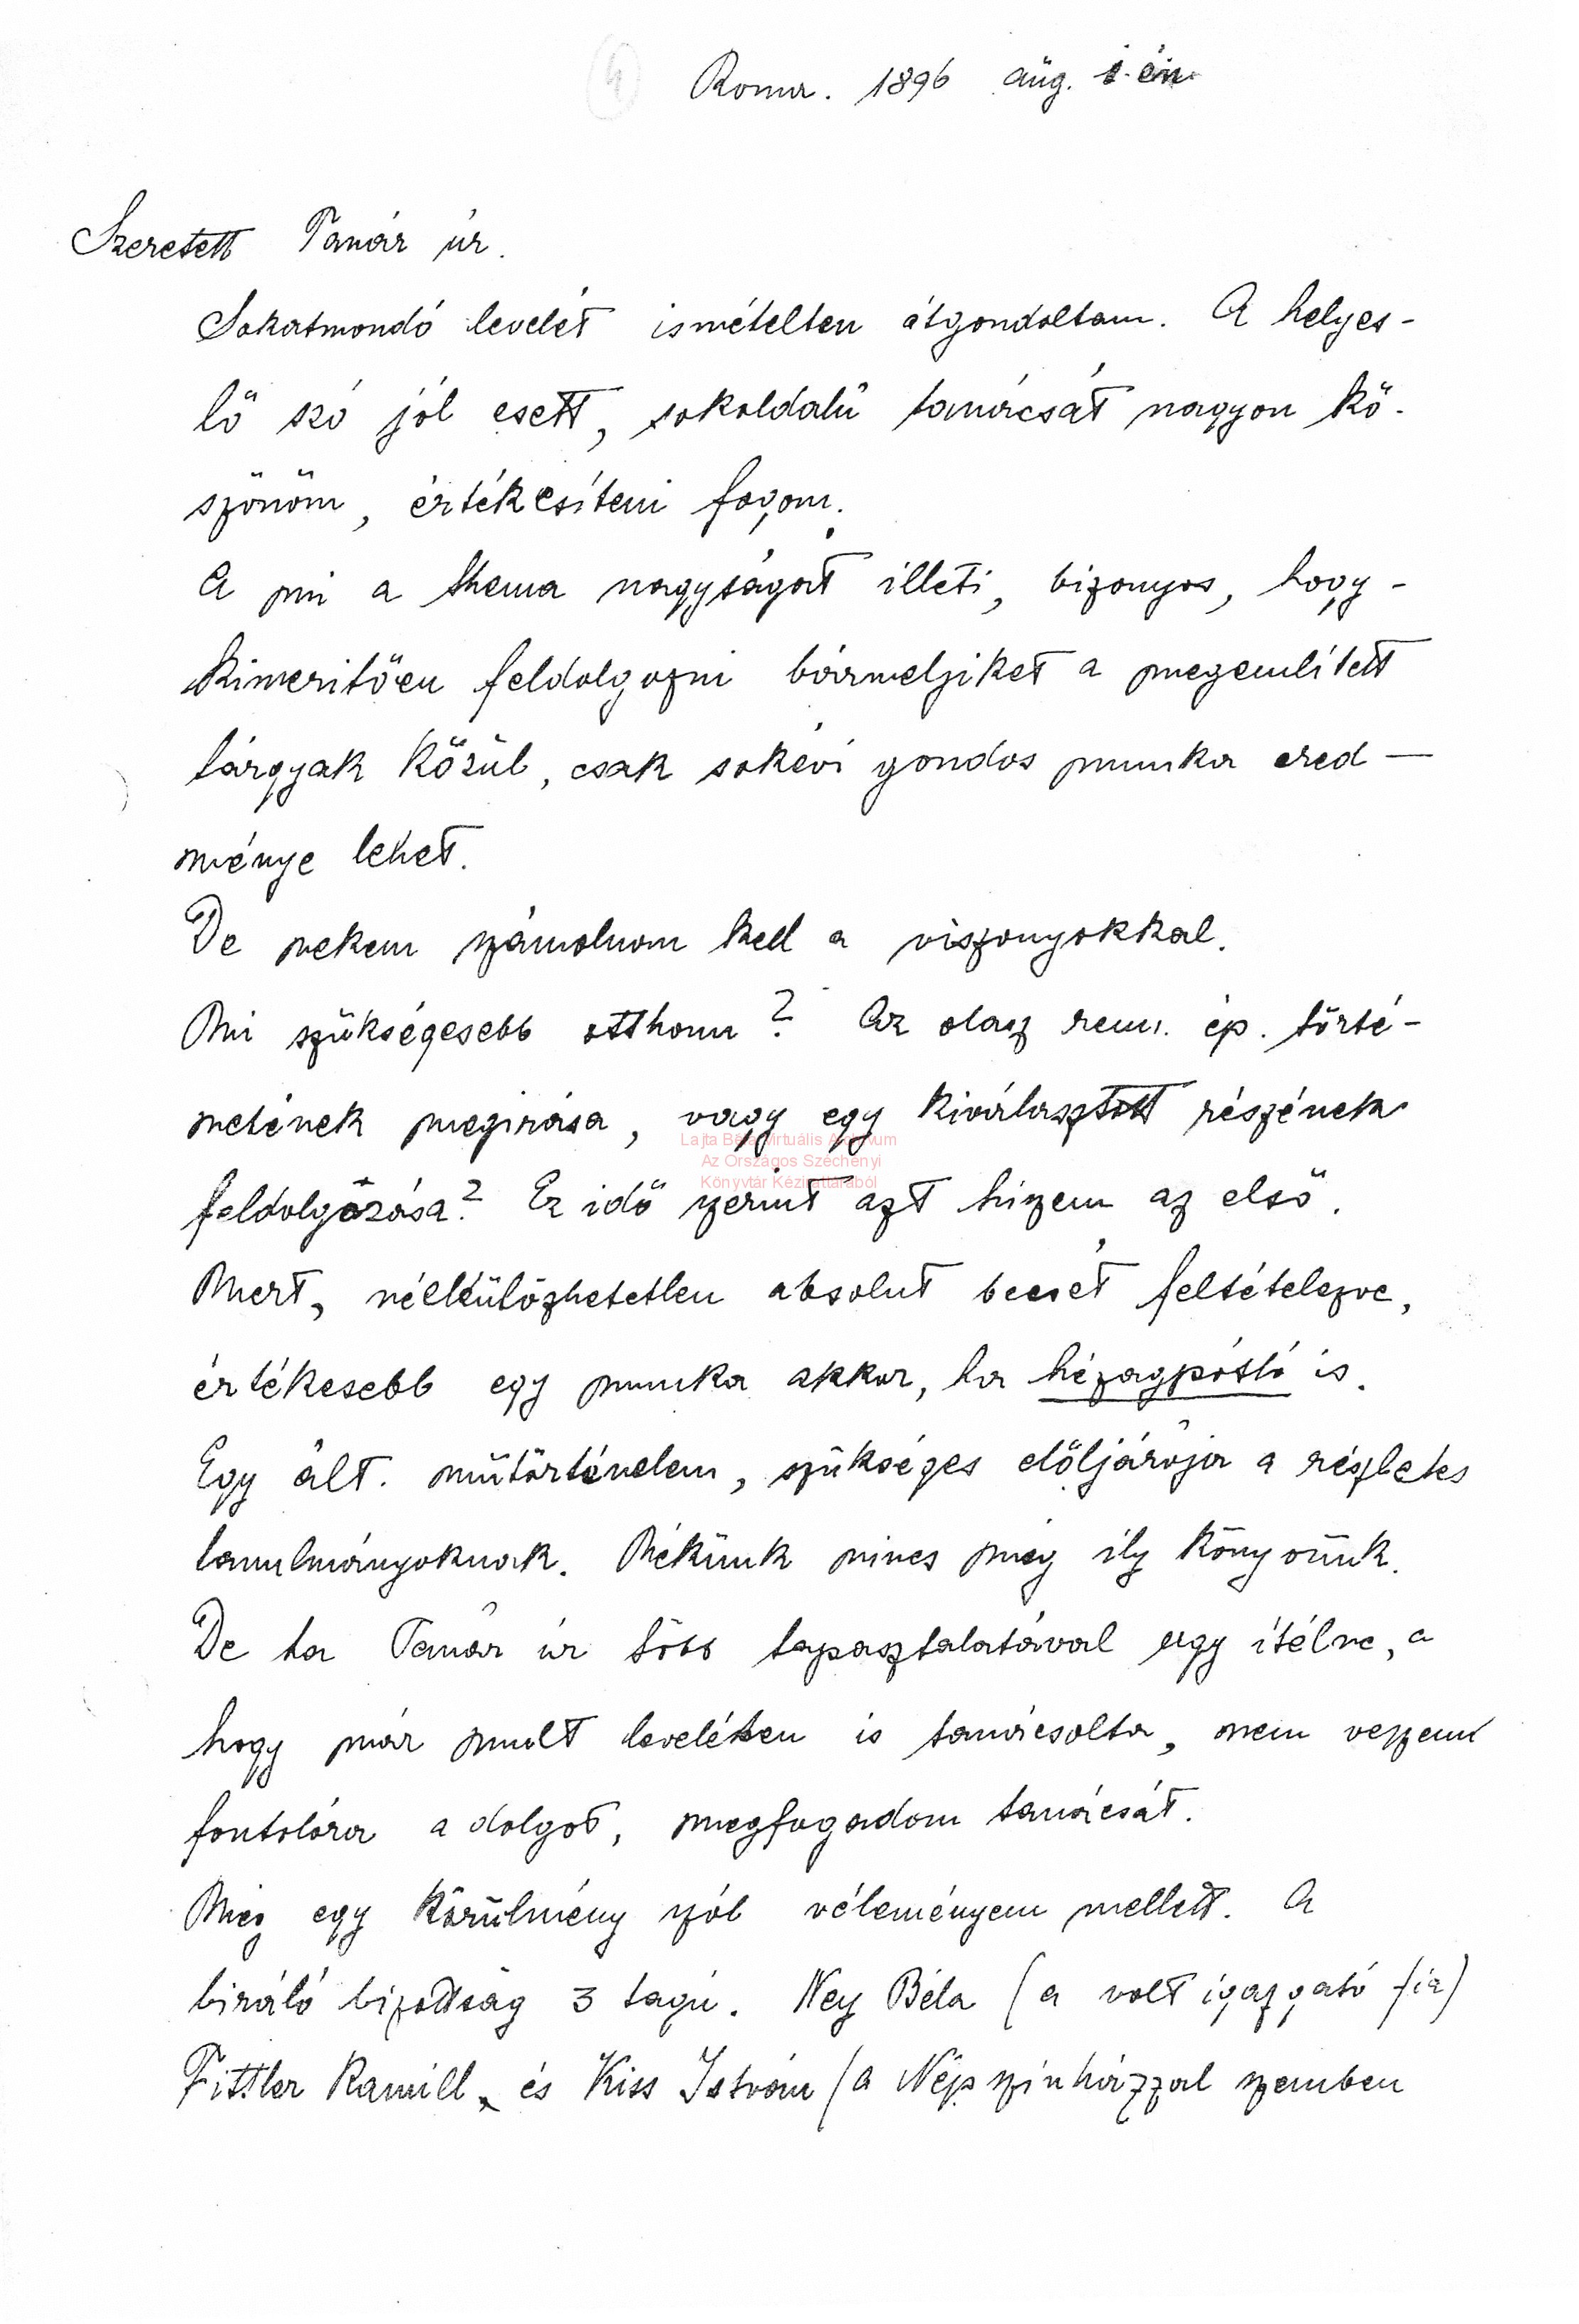 (4) Roma. 1896 aug. 1-én
Szeretett Tanár úr.
Sokatmondó levelét ismételten átgondoltam. A helyes-
lő szó jól esett, sokoldalú tanácsát nagyon kö-
szönöm, értékesíteni fogom.
A mi a thema nagyságát illeti, bizonyos, hogy -
kimeritően feldolgozni bármelyiket a megemlített
tárgyak közül, csak sokévi gondos munka ered-
ménye lehet.
De nekem számolnom kell a viszonyokkal.
Mi szükségesebb otthonn? Az olasz ren. ép. törté-
netének megirása, vagy egy kiválasztott részének
Lajta Béla Virtuális Archívum
Az Országos Széchényi
Könyvtár Kézirattárából
feldolgozása? Ez idő szerint azt hiszem az első.
Mert, nélkülözhetetlen absolut becsét feltételezve,
értékesebb egy munka akkor, ha hézagpótló is.
Egy ált. műtörténelem, szükséges előljárója a részletes
tanulmányoknak. Nékünk nincs még ily könyvünk.
De ha Tanár úr több tapasztalatával ugy ítélne, a
hogy már mult levelében is tanácsolta, nem veszem
fontolóra a dolgot, megfogadom tanácsát.
Még egy körülmény szól véleményem mellett. A
biráló bizottság 3 tagú. Ney Béla (a volt igazgató fia)
Fittler Kamill, és Kiss István (a Népszínházzal szemben